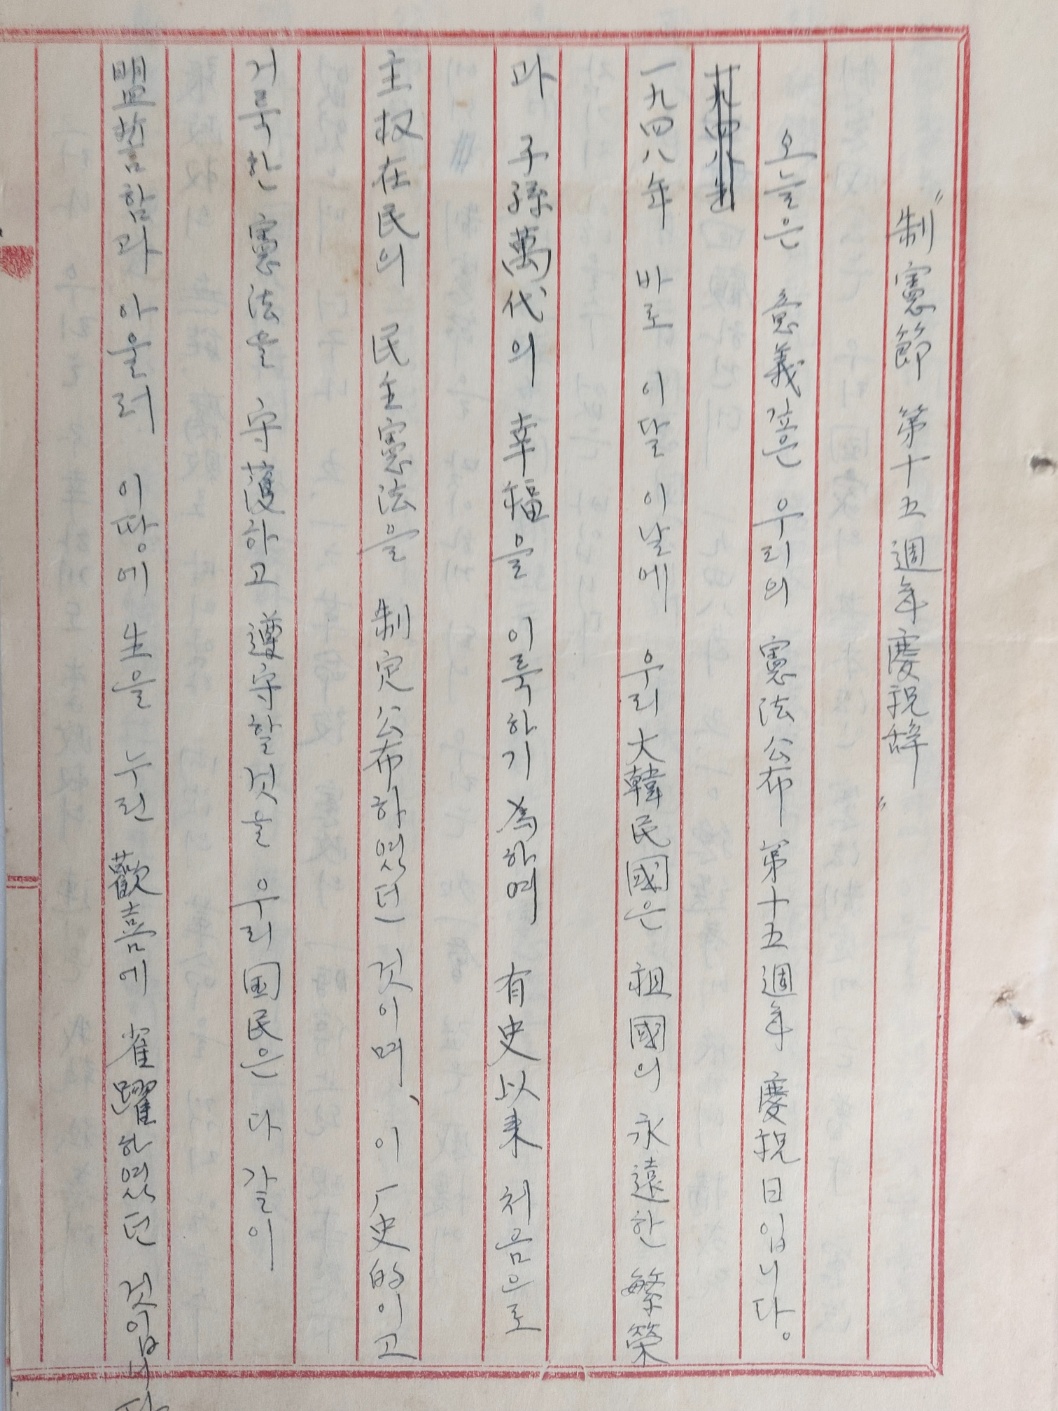 “制憲節 第十五週年慶祝辞”
오늘은 意義깊은 우리의 憲法公布 第十五週年 慶祝日입니다。
一九四八年 바로 이달 이날에 우리 大韓民國은 祖國의 永遠한 繁榮
과 子孫萬代의 幸福을 이룩하기 爲하여 有史以来 처음으로
主权在民의 民主憲法을 制定公布하였던 것이며、이 厂史的이고
거룩한 憲法을 守護하고 遵守할것을 우리 国民은 다 갈이
盟誓함과 아울러 이땅에 生을 누린 歡喜에 雀躍하였던 것입니다